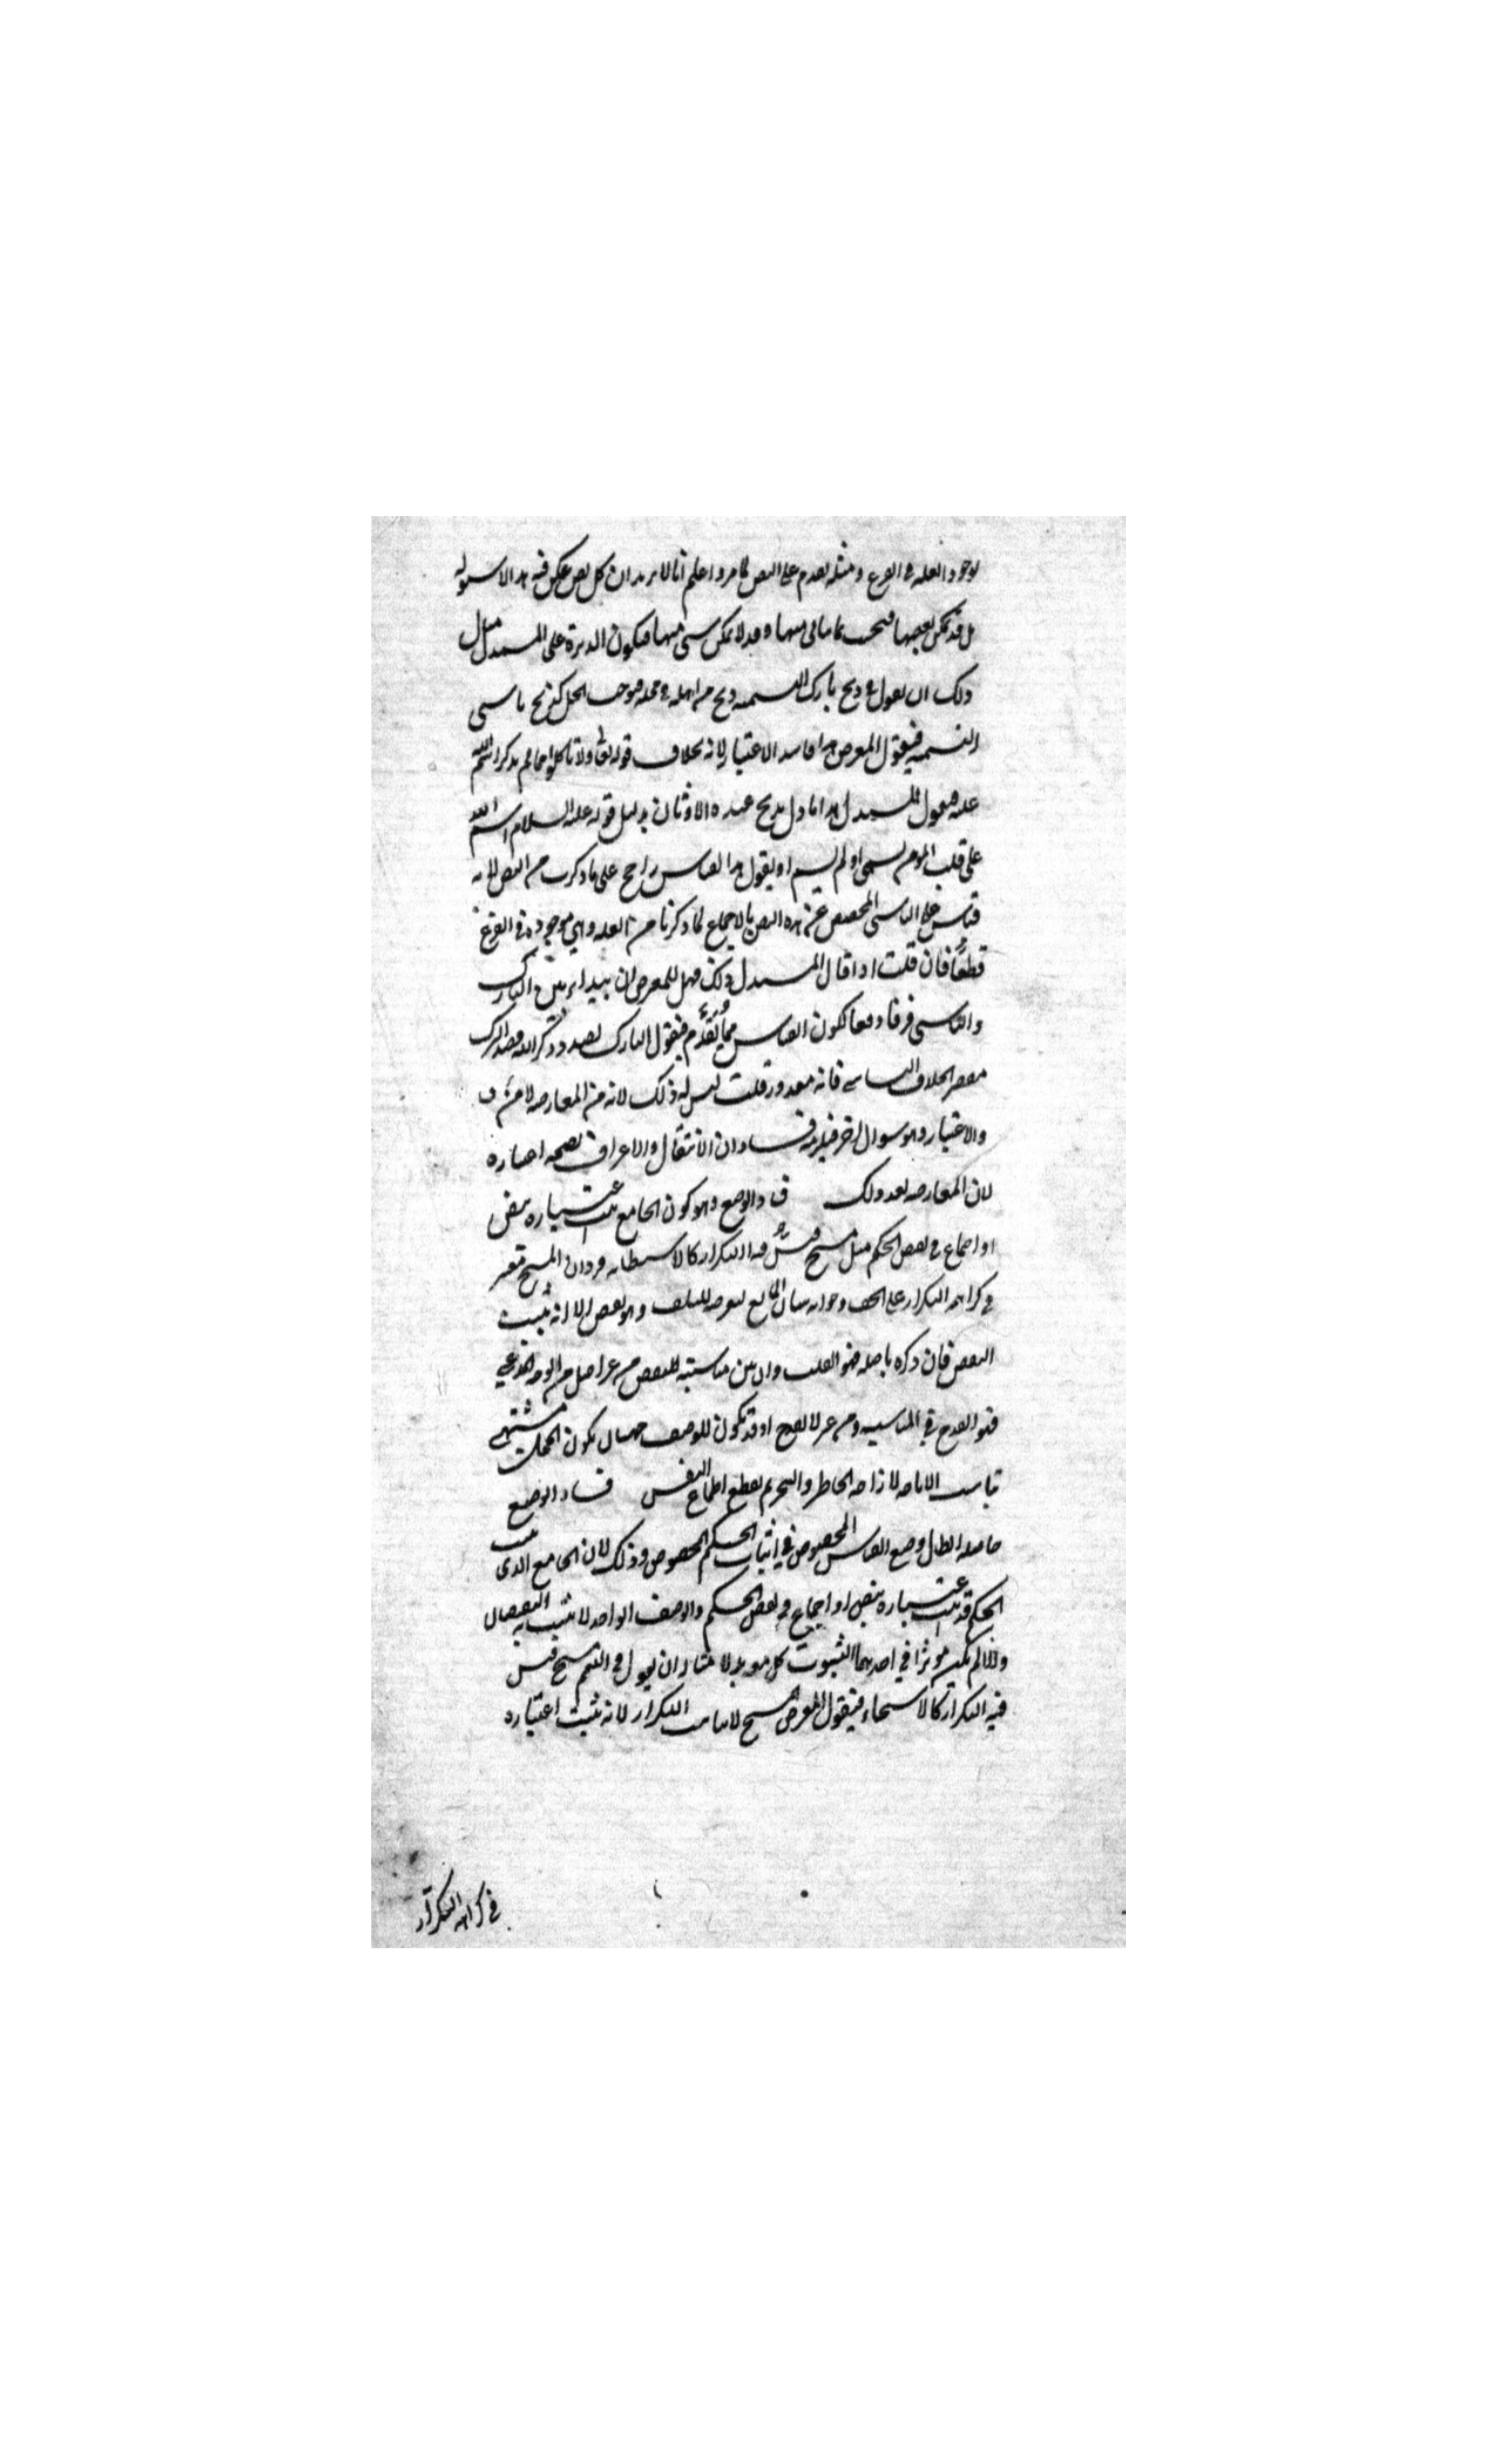 لوجود العله في الفرع ومثله يقدم على النص كما مر واعلم انا لا نريد ان كل نص يمكن فيه هذه الاسوله
بل قد يمكن بعضها فيجيب بما يتاتى منها وقد لا يمكن شى منها فيكون الدبرة على المستدل مثل
ذلك ان يقول في ذبح تارك التسميه ذبح من اهله في محله فيوجب الحل كذبح ناسى
التسميه فيقول المعرض هذا فاسد الاعتبار لانه بخلاف قوله تعالى ولا تاكلوا مما لم يذكر اسم الله
عليه فيقول المستدل هذا ماول بذبح عبدة الاوثان بدليل قوله عليه السلام اسم الله
على قلب المومن سمى او لم يسم او يقول هذا القياس راجح على ما ذكرت من النص لانه
قياس على الناسى المخصص عن هذه النص بالاجماع لما ذكرنا من العله وهي موجوده في الفرع
قطعا فان قلت اذا قال المستدل ذلك فهل للمعرض ان يبدى بين التارك
والناسى فرقا دفعا لكون القياس مما يقدم فيقول التارك بصدد ذكر الله فصد الترك
مقصر بخلاف الناسى فانه معذور قلت ليس له ذلك لانه من المعارضه لا من ف
والاعتبار وهو سوال اخر فيلزمه فسادان الانتقال والاعراف بصحه اعتباره
لان المعارضه بعد ذلك فساد الوضع وهو كون الجامع ثبت اعتباره بنص
او اجماع في نقيض الحكم مثل مسح فيسن فيه التكرار كالاستطابه فيرد ان المسح معتبر
في كراهه التكرار على الخف وجوابه ببيان المانع لتعرضه للتلف وهو نقض الا انه يثبت
النقيض فان ذكره باصله فهو القلب وان بين مناسبته للنقيض من غير اصل من الوجه المدعي
فهو القدح في المناسبه ومن غيره لا يقدح اذ قد يكون للوصف جهتان يكون المحل مشتهى
يناسب الاباحه لازاحه الخاطر والتحريم لقطع اطماع النفس فساد الوضع
حاصله ابطال وضع القياس المخصوص في اثبات الحكم المخصوص وذلك لان الجامع الذى يثبت
الحكم قد ثبت اعتباره بنص او اجماع في نقيض الحكم والوصف الواحد لا يثبت به النقيضان
والا لم يكن موثرا في احدهما لثبوت كل مع بدلا مثاله ان يقول في التيمم مسح فيسن
فيه التكرار كالاستنجاء فيقول المعرض المسح لا يناسب التكرار لانه ثبت اعتباره
في كراهه التكرار